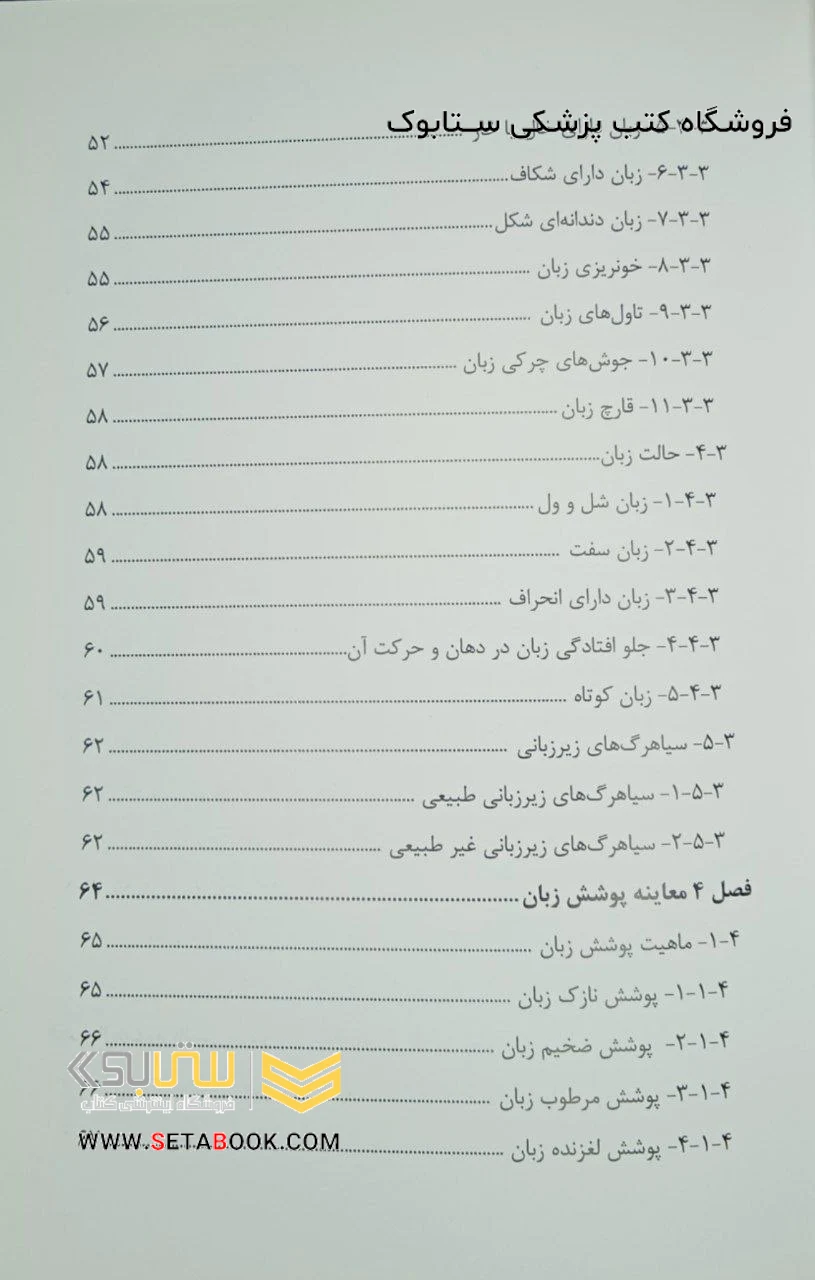 فروشگاه کتب پزشکی ستابوک
۵۲
۳-۳-۶- زبان دارای شکاف ۵۴
۳-۳-۷- زبان دندانه‌ای شکل ۵۵
۳-۳-۸- خونریزی زبان ۵۵
۳-۳-۹- تاول‌های زبان ۵۶
۳-۳-۱۰- جوش‌های چرکی زبان ۵۷
۳-۳-۱۱- قارچ زبان ۵۸
۳-۴- حالت زبان ۵۸
۳-۴-۱- زبان شل و ول ۵۸
۳-۴-۲- زبان سفت ۵۹
۳-۴-۳- زبان دارای انحراف ۵۹
۳-۴-۴- جلو افتادگی زبان در دهان و حرکت آن ۶۰
۳-۴-۵- زبان کوتاه ۶۱
۳-۵- سیاهرگ‌های زیرزبانی ۶۲
۳-۵-۱- سیاهرگ‌های زیرزبانی طبیعی ۶۲
۳-۵-۲- سیاهرگ‌های زیرزبانی غیر طبیعی ۶۲
فصل ۴ معاینه پوشش زبان ۶۴
۴-۱- ماهیت پوشش زبان ۶۵
۴-۱-۱- پوشش نازک زبان ۶۵
۴-۱-۲- پوشش ضخیم زبان ۶۶
۴-۱-۳- پوشش مرطوب زبان
۴-۱-۴- پوشش لغزنده زبان
ستابوک
فروشگاه اینترنتی کتاب
WWW.SETABOOK.COM